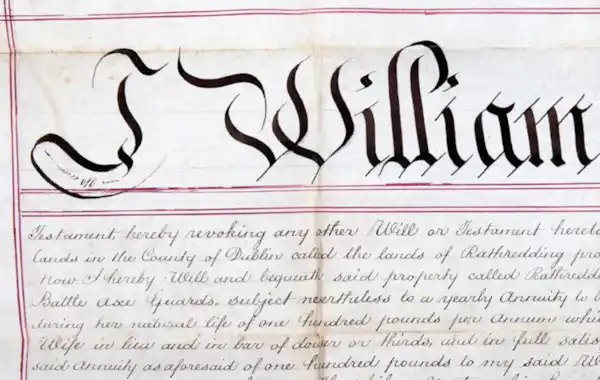 I William
Testament hereby revoking any other Will or Testament hereto
lands in the County of Dublin called the lands of Rathredding pro
now I hereby Will and bequeath said property called Rathredd
Battle Axe Guards, subject nevertheless to a yearly Annuity to b
during her natural life of one hundred pounds per Annum whi
Wife in lieu and in bar of dower or thirds, and in full satis
said Annuity as aforesaid of one hundred pounds to my said W